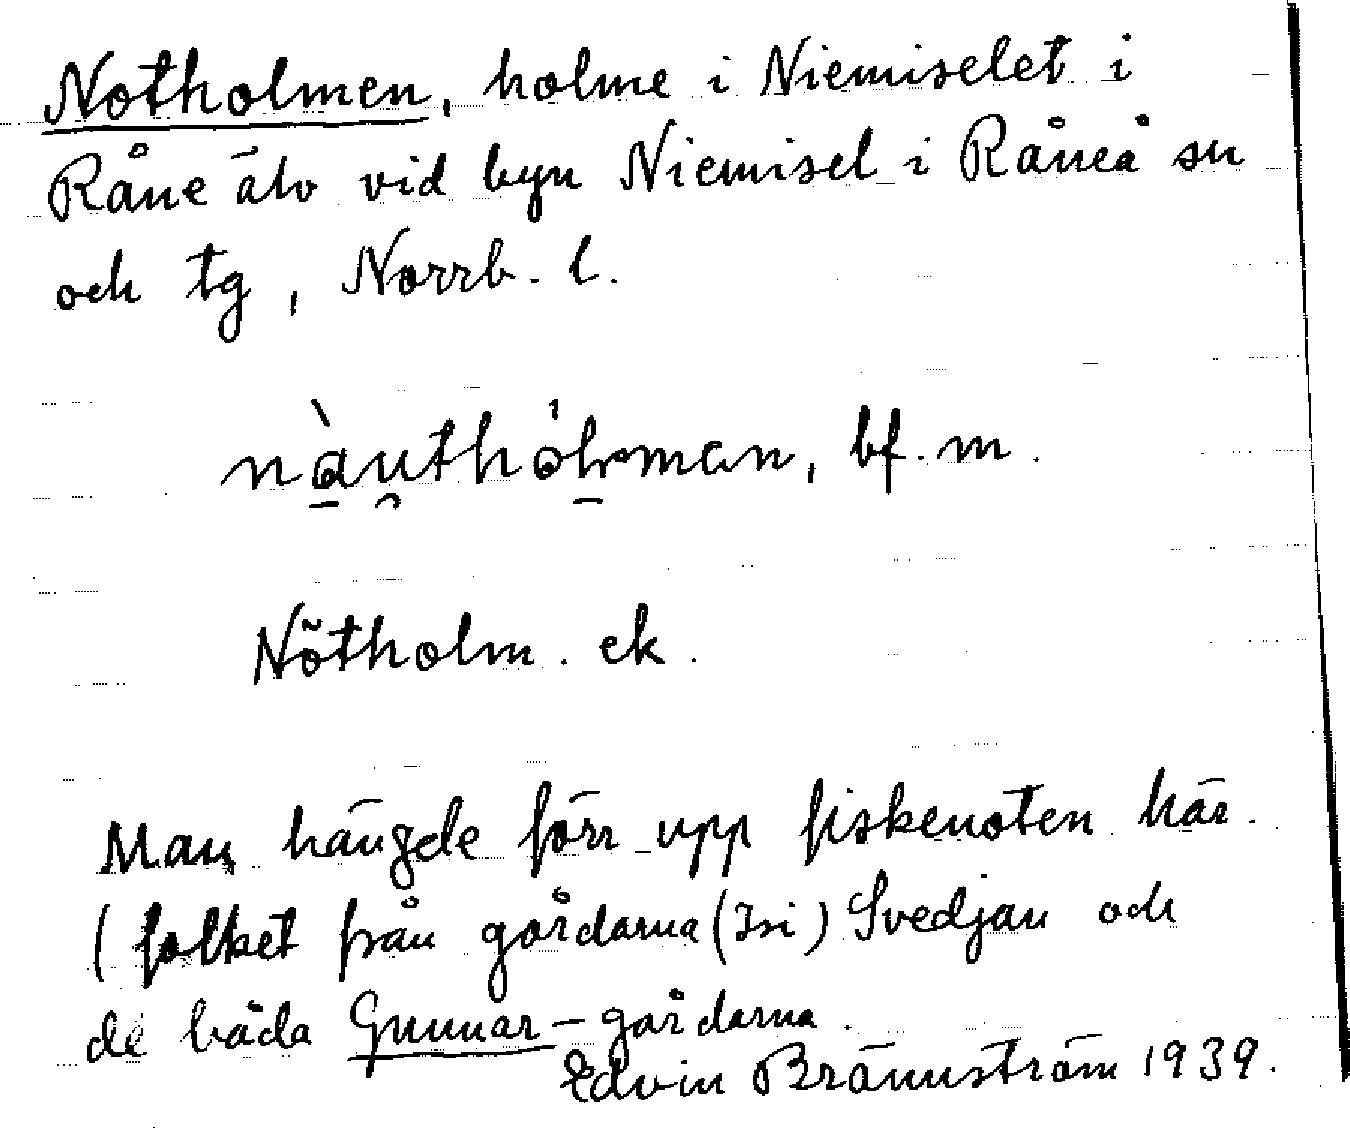 Notholmen, holme i Niemiselet i
Råne älv vid byn Niemisel i Råneå sn
och tg, Norrb. l.
nàu̯thòlman, bf. m.
Nõtholm. ek.
Man hängde förr upp fiskenoten här.
(folket från gårdarna (Isi) Svedjan och
de båda Gunnar-gårdarna.
Edvin Brännström 1939.